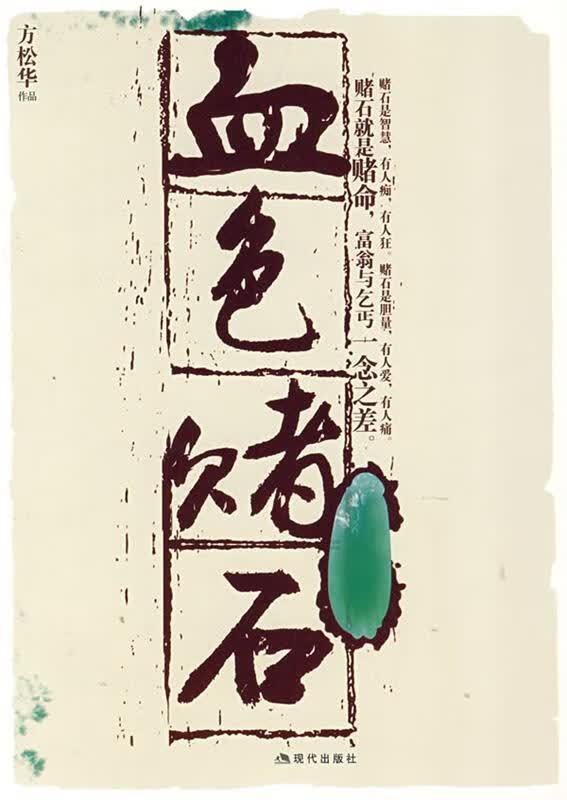 方松华
作品
血色赌石
赌石就是赌命，富翁与乞丐一念之差。
赌石是智慧，有人痴，有人狂。赌石是胆量，有人爱，有人痛。
现代出版社